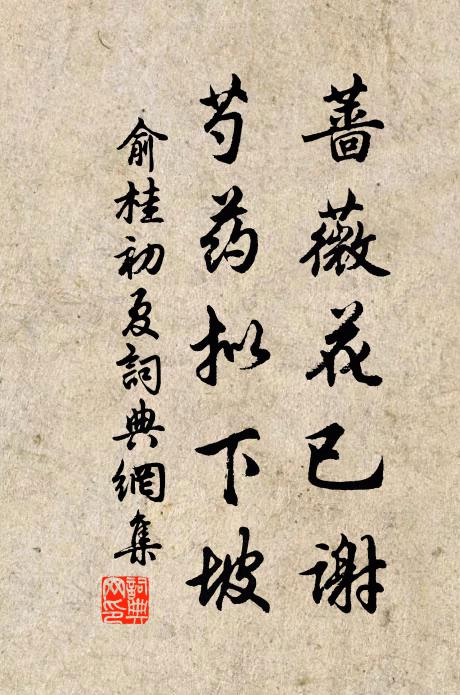 蔷薇花已谢
芍药拟下坡
俞桂初夏詞典網集
詞典网印